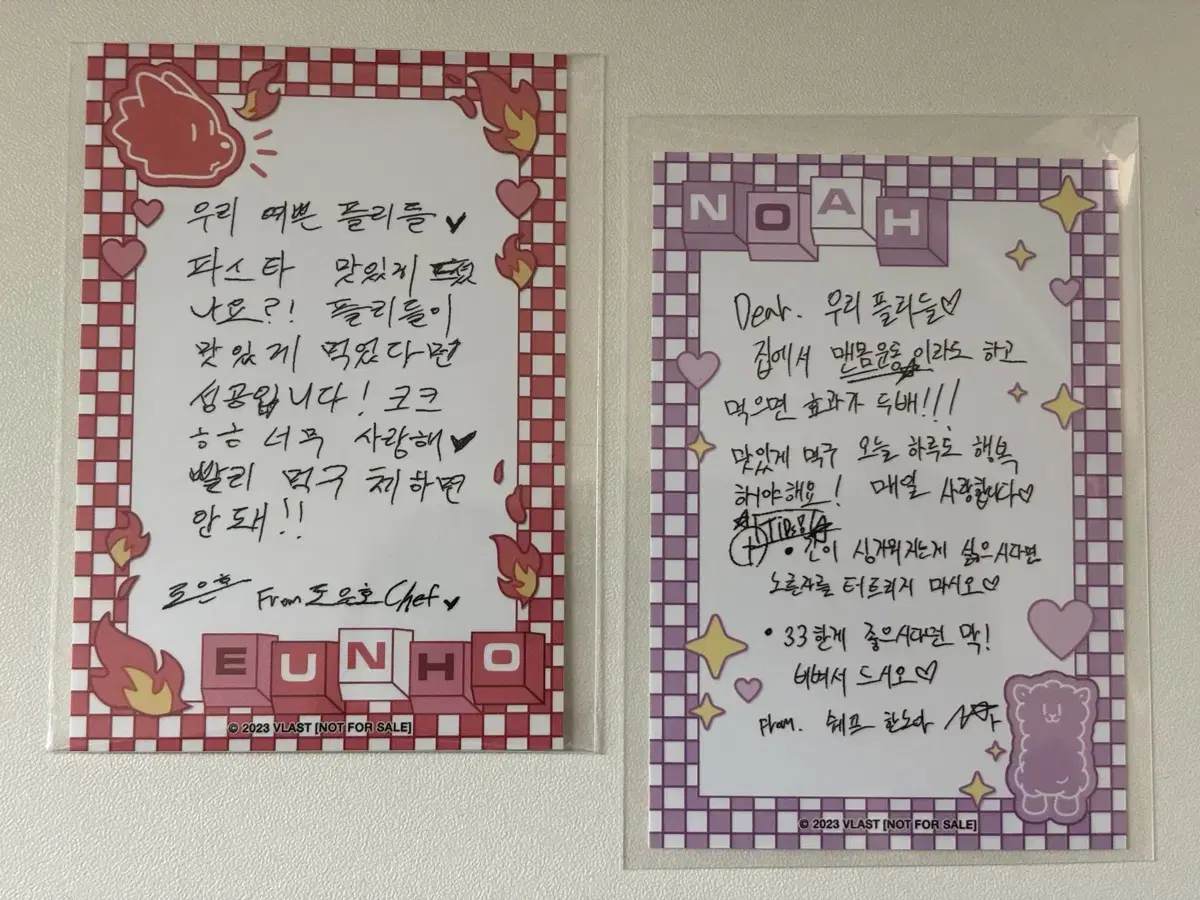 우리 예쁜 플리들
파스타 맛있게 드셨
나요?! 플리들이
맛있게 먹었다면
성공입니다! 코크
ㅎㅎ 너무 사랑해
빨리 먹구 체하면
안돼!!
도은호 From 도은호 Chef
EUNHO
© 2023 VLAST [NOT FOR SALE]
NOAH
Dear. 우리 플리들♡
집에서 맨몸운동이라도 하고
먹으면 효과가 두배!!!
맛있게 먹구 오늘 하루도 행복
해야해요! 매일 사랑합니다♡
TIP
• 간이 싱거워지는게 싫으시다면
노른자를 터트리지 마시오♡
• 33한게 좋으시다면 막!
비벼서 드시오♡
From. 쉐프 한노아
© 2023 VLAST [NOT FOR SALE]